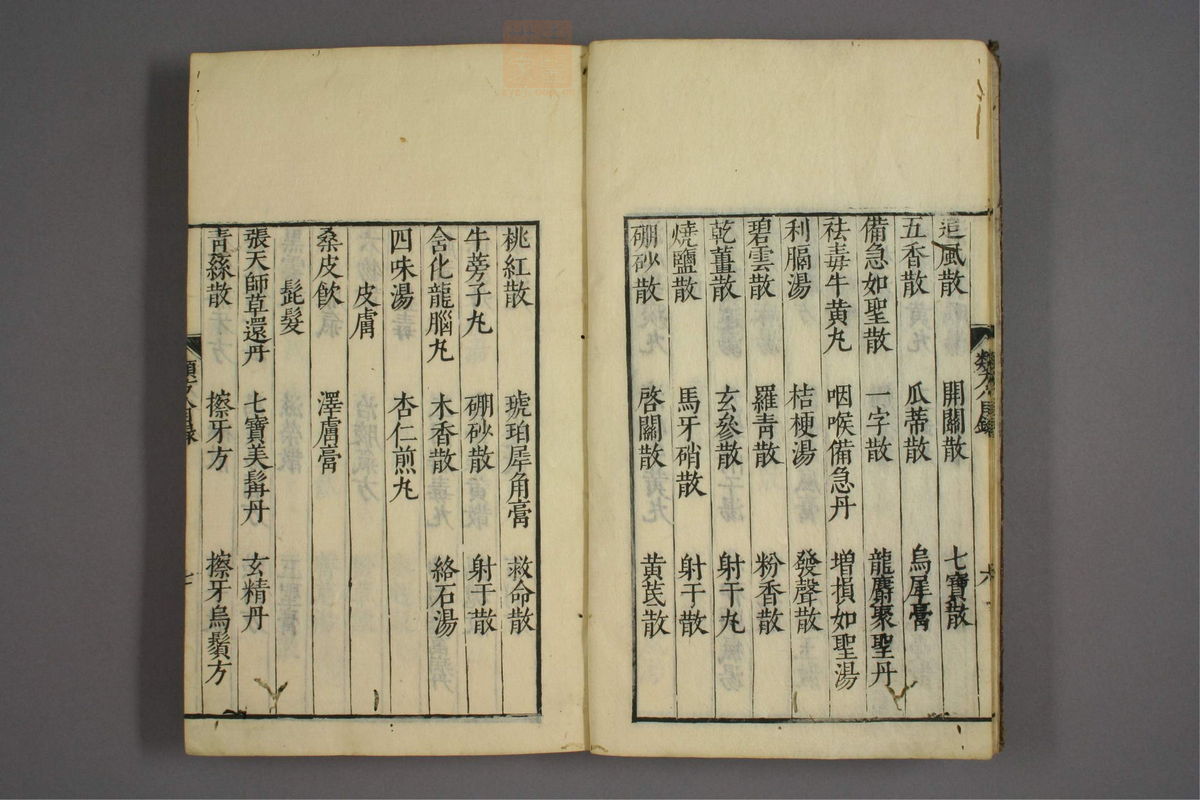 追風散 開關散 七寶散
五香散 瓜蒂散 烏犀膏
備急如聖散 一字散 龍麝聚聖丹
祛毒牛黃丸 咽喉備急丹 增損如聖湯
利膈湯 桔梗湯 發聲散
碧雲散 羅青散 粉香散
乾薑散 玄參散 射干丸
燒鹽散 馬牙硝散 射干散
硼砂散 啓關散 黃芪散
類方八目錄 六
桃紅散 琥珀犀角膏 救命散
牛蒡子丸 硼砂散 射干散
含化龍腦丸 木香散 絡石湯
四味湯 杏仁煎丸
皮膚
桑皮飲 澤膚膏
髭髮
張天師草還丹 七寶美髯丹 玄精丹
青絲散 擦牙方 擦牙烏鬚方
類方八目錄 七